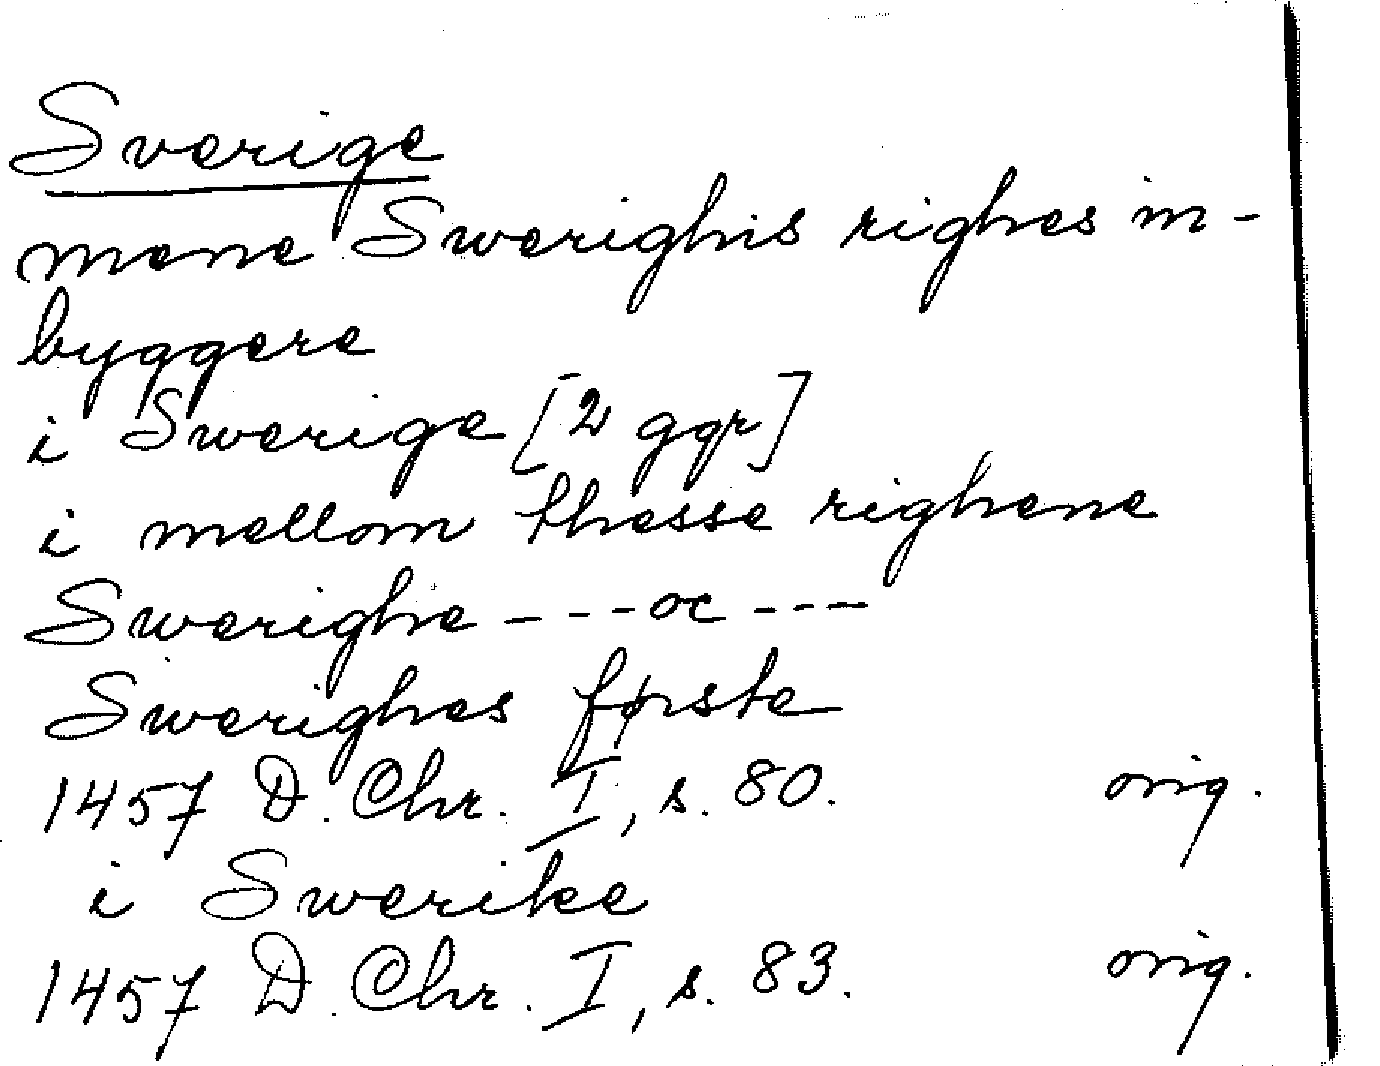 Sverige
mene Swerighis righes in-
byggere
i Swerige [2 ggr]
i mellom thesse righene
Swerighe - - - oc - - -
Swerighes første
1457 D. Chr. I, s. 80. orig.
i Swerike
1457 D. Chr. I, s. 83. orig.